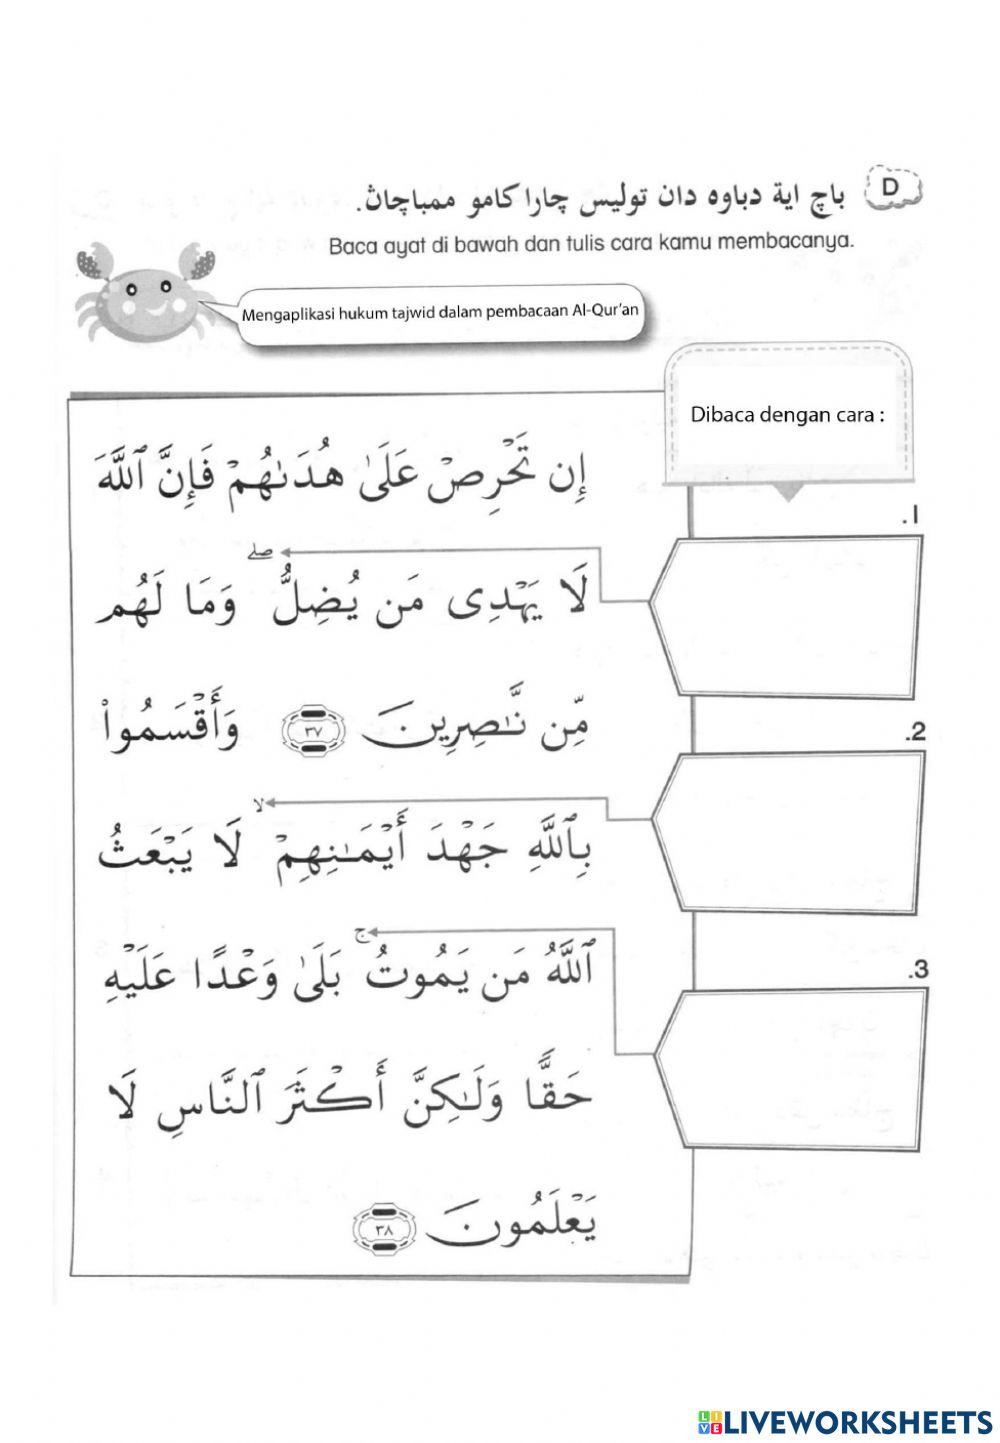 D
باچ اية دباوه دان توليس چارا كامو ممباچاڽ.
Baca ayat di bawah dan tulis cara kamu membacanya.
Mengaplikasi hukum tajwid dalam pembacaan Al-Qur’an
Dibaca dengan cara :
إِن تَحْرِصْ عَلَىٰ هُدَىٰهُمْ فَإِنَّ ٱللَّهَ
لَا يَهْدِى مَن يُضِلُّ ۖ وَمَا لَهُم
مِّن نَّـٰصِرِينَ ٣٧ وَأَقْسَمُوا۟
بِٱللَّهِ جَهْدَ أَيْمَـٰنِهِمْ ۙ لَا يَبْعَثُ
ٱللَّهُ مَن يَمُوتُ ۚ بَلَىٰ وَعْدًا عَلَيْهِ
حَقًّا وَلَـٰكِنَّ أَكْثَرَ ٱلنَّاسِ لَا
يَعْلَمُونَ ٣٨
.1
.2
.3
LIVE LIVEWORKSHEETS